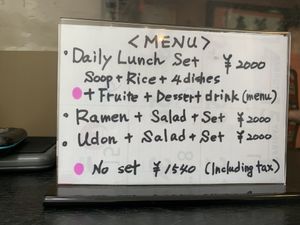 <MENU>
• Daily Lunch Set ¥2000
Soop + Rice + 4 dishes
+ Fruite + Dessert drink (menu)
• Ramen + Salad + Set ¥2000
• Udon + Salad + Set ¥2000
No set ¥1540 (Including tax)